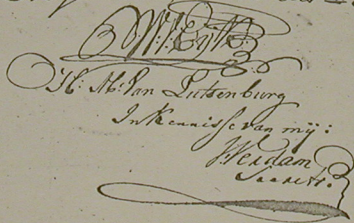 W: V: Eyk:
H: M: Van Lutsenburg
In Kennisse van mij:
Werdam
Secret: